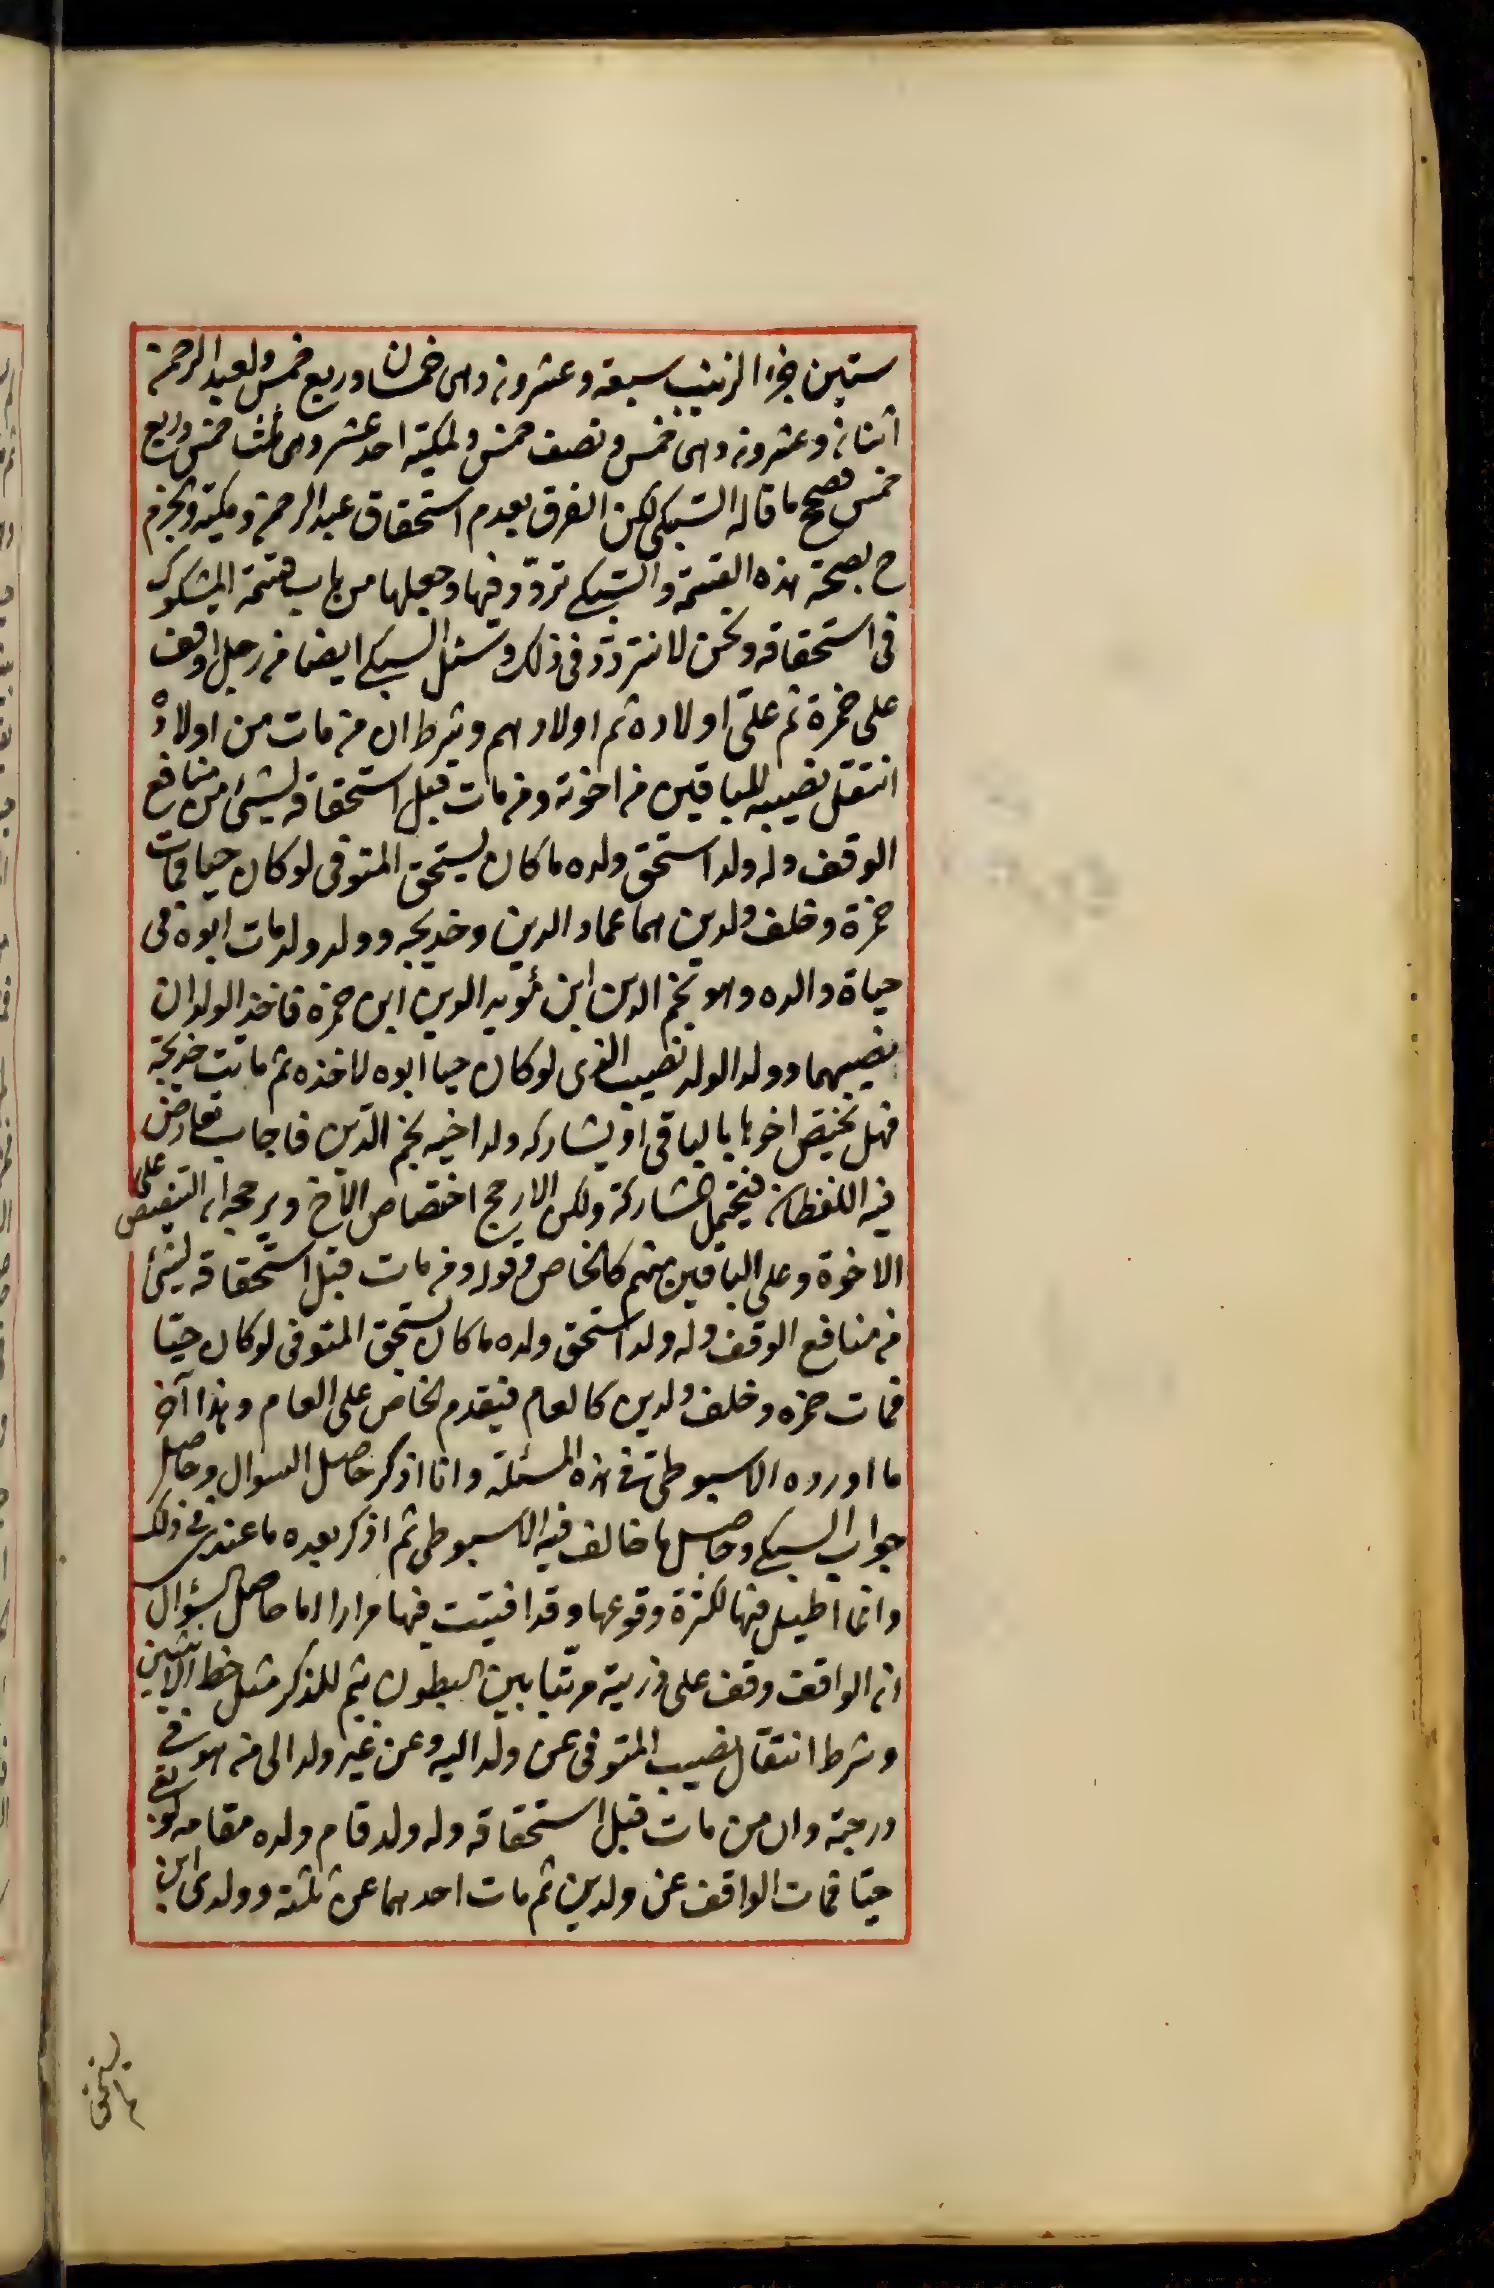 ستين جزءا لزينب سبعة وعشرونه وهى خمسان وربع خمس ولعبد الرحمن
اثنان وعشرونه وهى خمس ونصف خمس ولملكية احد عشر وهى ثلثا خمس وربع
خمس فصح ما قاله السبكى لكن الفرق بعدم استحقاق عبد الرحمن وملكية والجزم
ح بصحة هذه القسمة والسبكى تردد فيها وجعلها من باب قسمة المشكوك
فى استحقاقه ونحن لا نتردد فى ذلك وسئل السبكى ايضا من رجل اوقف
على حمزة ثم على اولاده ثم اولادهم وشرط ان من مات من اولاده
انتقل نصيبه للباقين من اخوته ومن مات قبل استحقاقه لشئ من منافع
الوقف وله ولد استحق ولده ما كان يستحق المتوفى لو كان حيا فمات
حمزة وخلف ولدين هما عماد الدين وخديجه وولد ولد مات ابوه فى
حياة والده وهو نجم الدين ابن مؤيد الدين ابن حمزة فاخذ الولدان
نصيبهما وولد الولد نصيب الذى لو كان حيا ابوه لاخذه ثم ماتت خديجة
فهل يختص اخوها بالباقى او يشاركه ولد اخيه نجم الدين فاجاب تعارض
فيه اللفظان فيحتمل المشاركة ولكن الارجح اختصاص الاخ ويرجحه ان التنصيص على
الاخوة وعلى الباقين منهم كالخاص وقوله ومن مات قبل استحقاقه لشئ
من منافع الوقف وله ولد استحق ولده ما كان يستحق المتوفى لو كان حيا
فمات حمزه وخلف ولدين كالعام فيقدم الخاص على العام وهذا آخر
ما اورده الاسيوطى فى هذه المسئلة وانا اذكر حاصل السوال وحاصل
جواب السبكى وحاصل ما خالف فيه الاسيوطى ثم اذكر بعده ما عندى فى ذلك
وانما اطيل فيها لكثرة وقوعها وقد افتيت فيها مرارا اما حاصل السؤال
ان الواقف وقف على ذريته مرتبا بين البطون ثم للذكر مثل حظ الانثيين
وشرط انتقال نصيب المتوفى عن ولد اليه وعن غير ولد الى من هو فى
درجته وان من مات قبل استحقاقه وله ولد قام ولده مقامه لو بقى
حيا فمات الواقف عن ولدين ثم مات احدهما عن ثلثة وولدى ابن